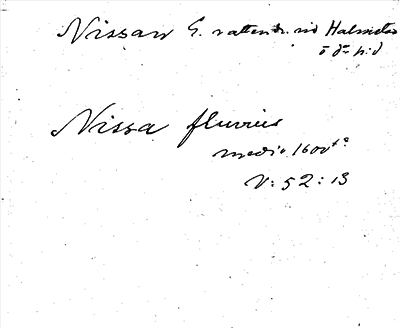 Nissan G. vattendr. vid Halmstad
ö dn h:d
Nissa fluvius
medio 1600to
V: 52: 13